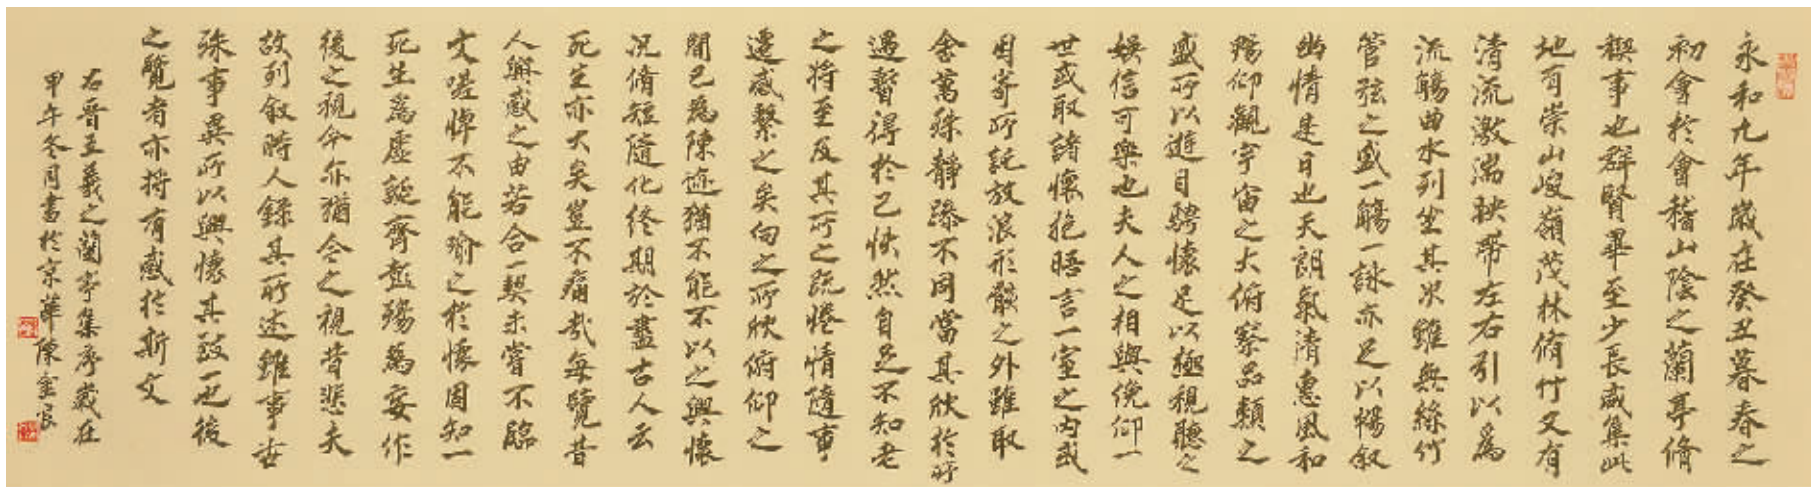 永和九年歲在癸丑暮春之
初會於會稽山陰之蘭亭脩
禊事也群賢畢至少長咸集此
地有崇山峻嶺茂林脩竹又有
清流激湍映帶左右引以為
流觴曲水列坐其次雖無絲竹
管弦之盛一觴一詠亦足以暢敘
幽情是日也天朗氣清惠風和
暢仰觀宇宙之大俯察品類之
盛所以遊目騁懷足以極視聽之
娛信可樂也夫人之相與俛仰一
世或取諸懷抱晤言一室之內或
因寄所託放浪形骸之外雖取
舍萬殊靜躁不同當其欣於所
遇暫得於己怏然自足不知老
之將至及其所之既惓情隨事
遷感繫之矣向之所欣俯仰之
間已為陳迹猶不能不以之興懷
況脩短隨化終期於盡古人云
死生亦大矣豈不痛哉每覽昔
人興感之由若合一契未嘗不臨
文嗟悼不能喻之於懷固知一
死生為虛誕齊彭殤為妄作
後之視今亦猶今之視昔悲夫
故列敘時人錄其所述雖事世
殊事異所以興懷其致一也後
之覽者亦將有感於斯文
右晉王羲之蘭亭集序歲在
甲午冬月書於京華陳金良